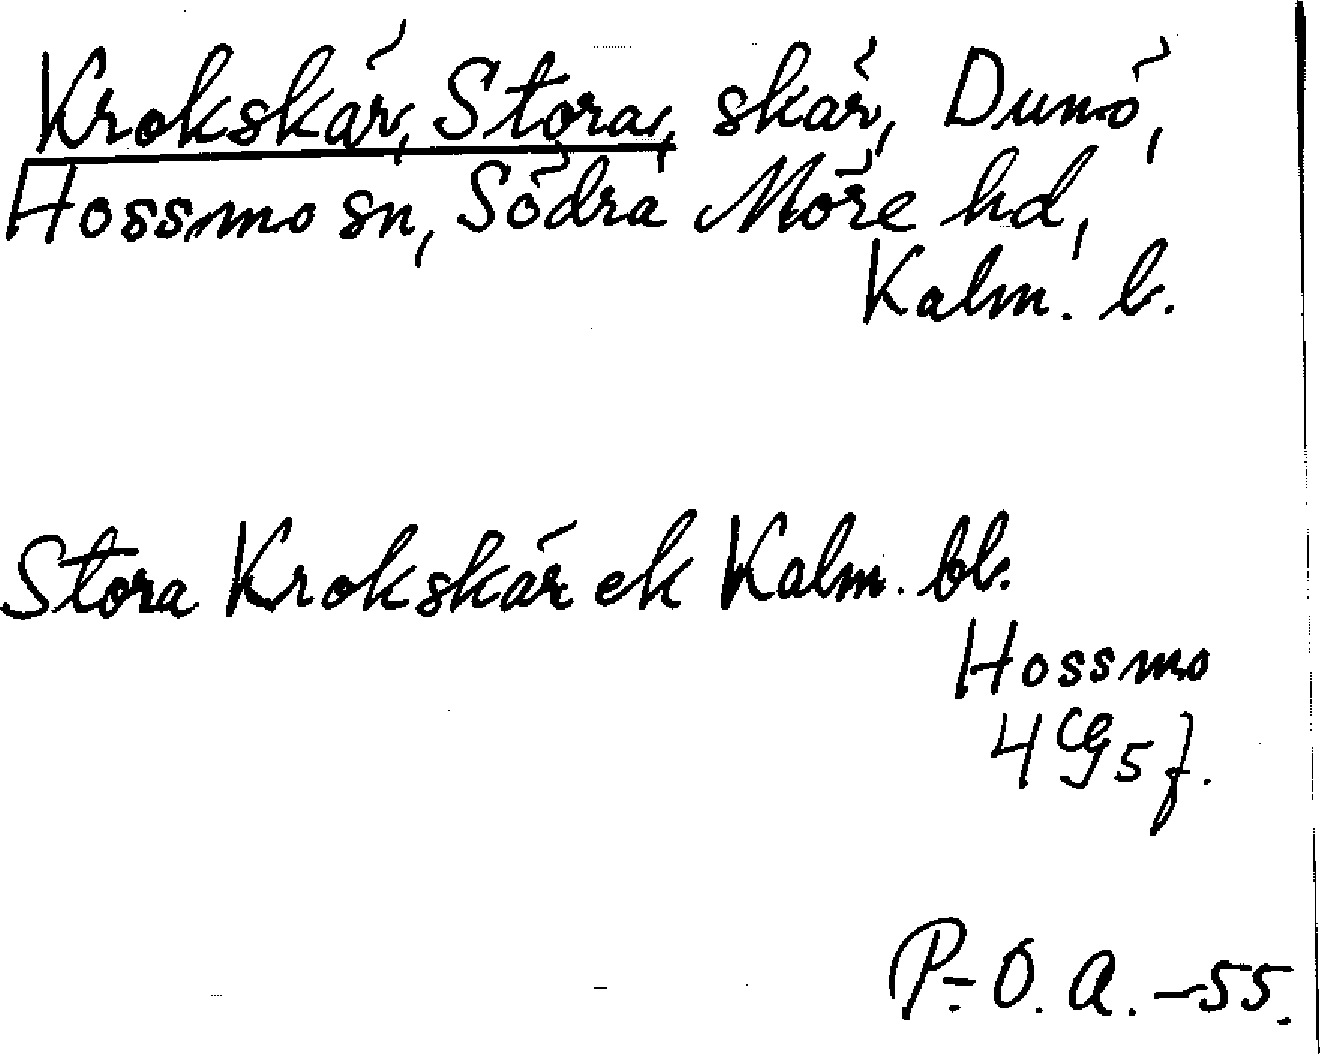 Krokskär, Stora, skär, Dunö,
Hossmo sn, Södra Möre hd,
Kalm. l.
Stora Krokskär ek Kalm. ll.
Hossmo
4G5f.
P.-O. A. -55.